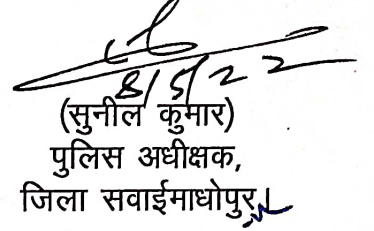 8/5/22
(सुनील कुमार)
पुलिस अधीक्षक,
जिला सवाईमाधोपुर।